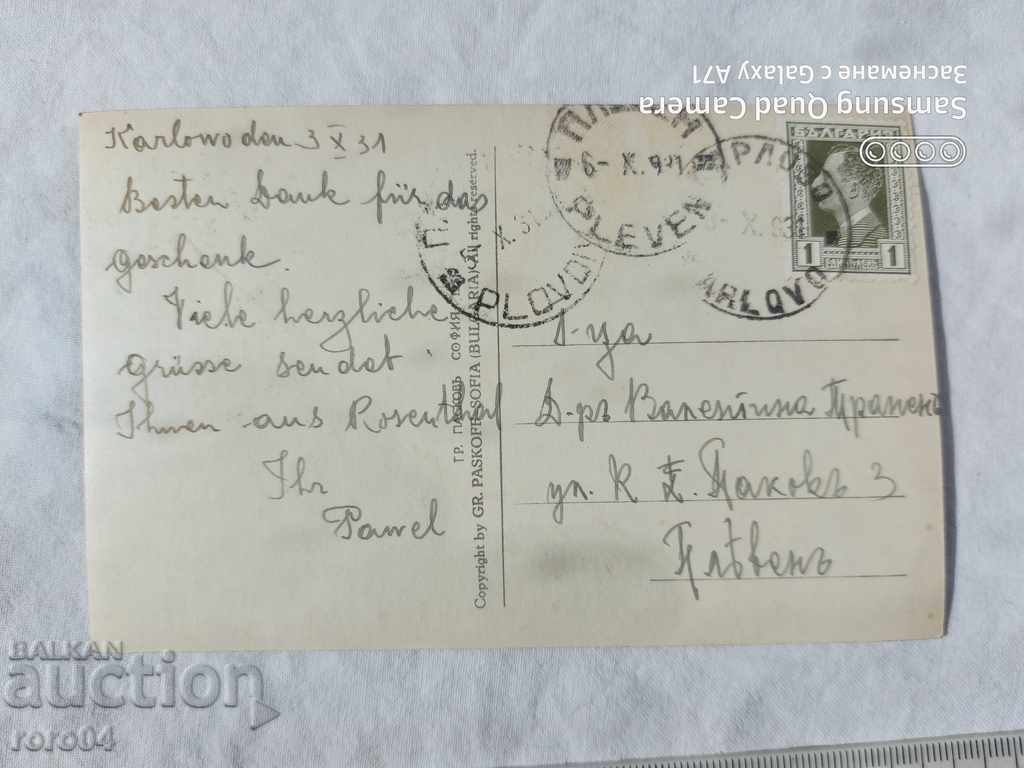 Karlowo den 3 X 31
Besten Dank für das
geschenk.
Viele herzliche
grüsse sendet
Ihnen aus Rosenthal
Ihr
Pawel
ГР. ПАСКОВЪ СОФИЯ
Copyright by GR. PASKOFF SOFIA (BULGARIA) All rights reserved.
6- X.931
PLEVEN
X.31
PLOVDIV
КАРЛОВО
X.931
KARLOVO
БЪЛГАРИЯ
1 1
Г-ца
Д-ръ Валентина
ул. К 3
Плѣвенъ
Samsung Quad Camera
Заснемане с Galaxy A71
BALKAN
auction
roro04